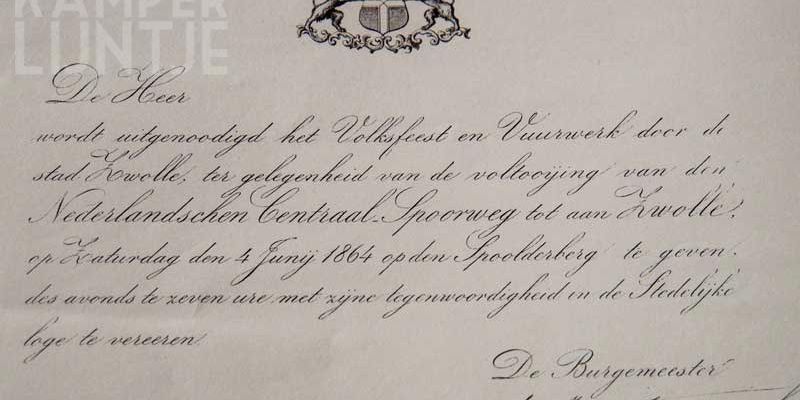 KAMPER
LIJNTJE
De Heer
wordt uitgenoodigd het Volksfeest en Vuurwerk door de
stad Zwolle, ter gelegenheid van de voltooijing van den
Nederlandschen Centraal-Spoorweg tot aan Zwolle,
op Zaturdag den 4 Junij 1864 op den Spoolderberg te geven,
des avonds te zeven ure, met zijne tegenwoordigheid in de Stedelijke
loge te vereeren.
De Burgemeester